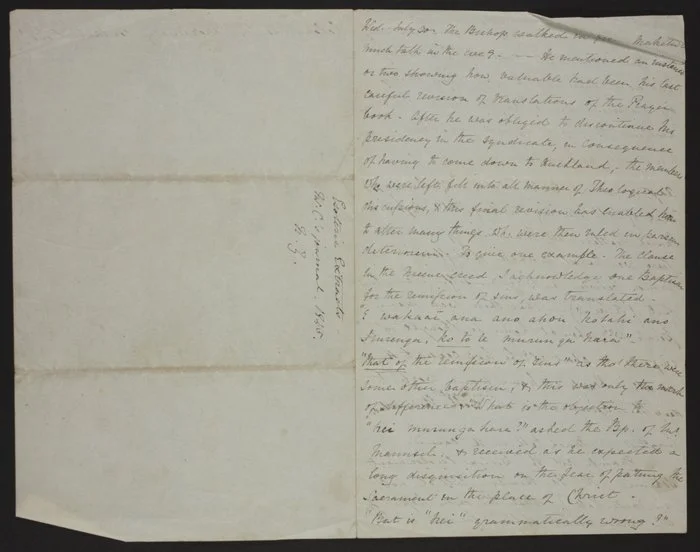 Esoteric Extracts
Mr. C's journal. 1845.
N. Z.
Wed. July 30. the Bishop walked Maketu
much talk in the eve'g. He mentioned an instance
or two showing how valuable had been his last
careful revision of translations of the Prayer
book. After he was obliged to discontinue his
Presidency in the Syndicate, in consequence
of having to come down to Auckland, the members
who were left fell into all manner of Theological
discussions, & this final revision has enabled him
to alter many things wh. were then ruled in
deteriorem. To give one example. The Clause
in the Nicene creed, I acknowledge one Baptism
for the remission of sins, was translated.
"E wakaae ana ano ahau kotahi ano
Iriiringa, ko to te murunga hara"
"that of the remission of sins" as tho' there were
some other baptism, & this was only the mark
of difference. What is the objection to
"hei murunga hara?" asked the Bp. of Mr.
Maunsell. & received as he expected a
long disquisition on the fear of putting the
Sacrament in the place of Christ.
"But is "hei" grammatically wrong?"